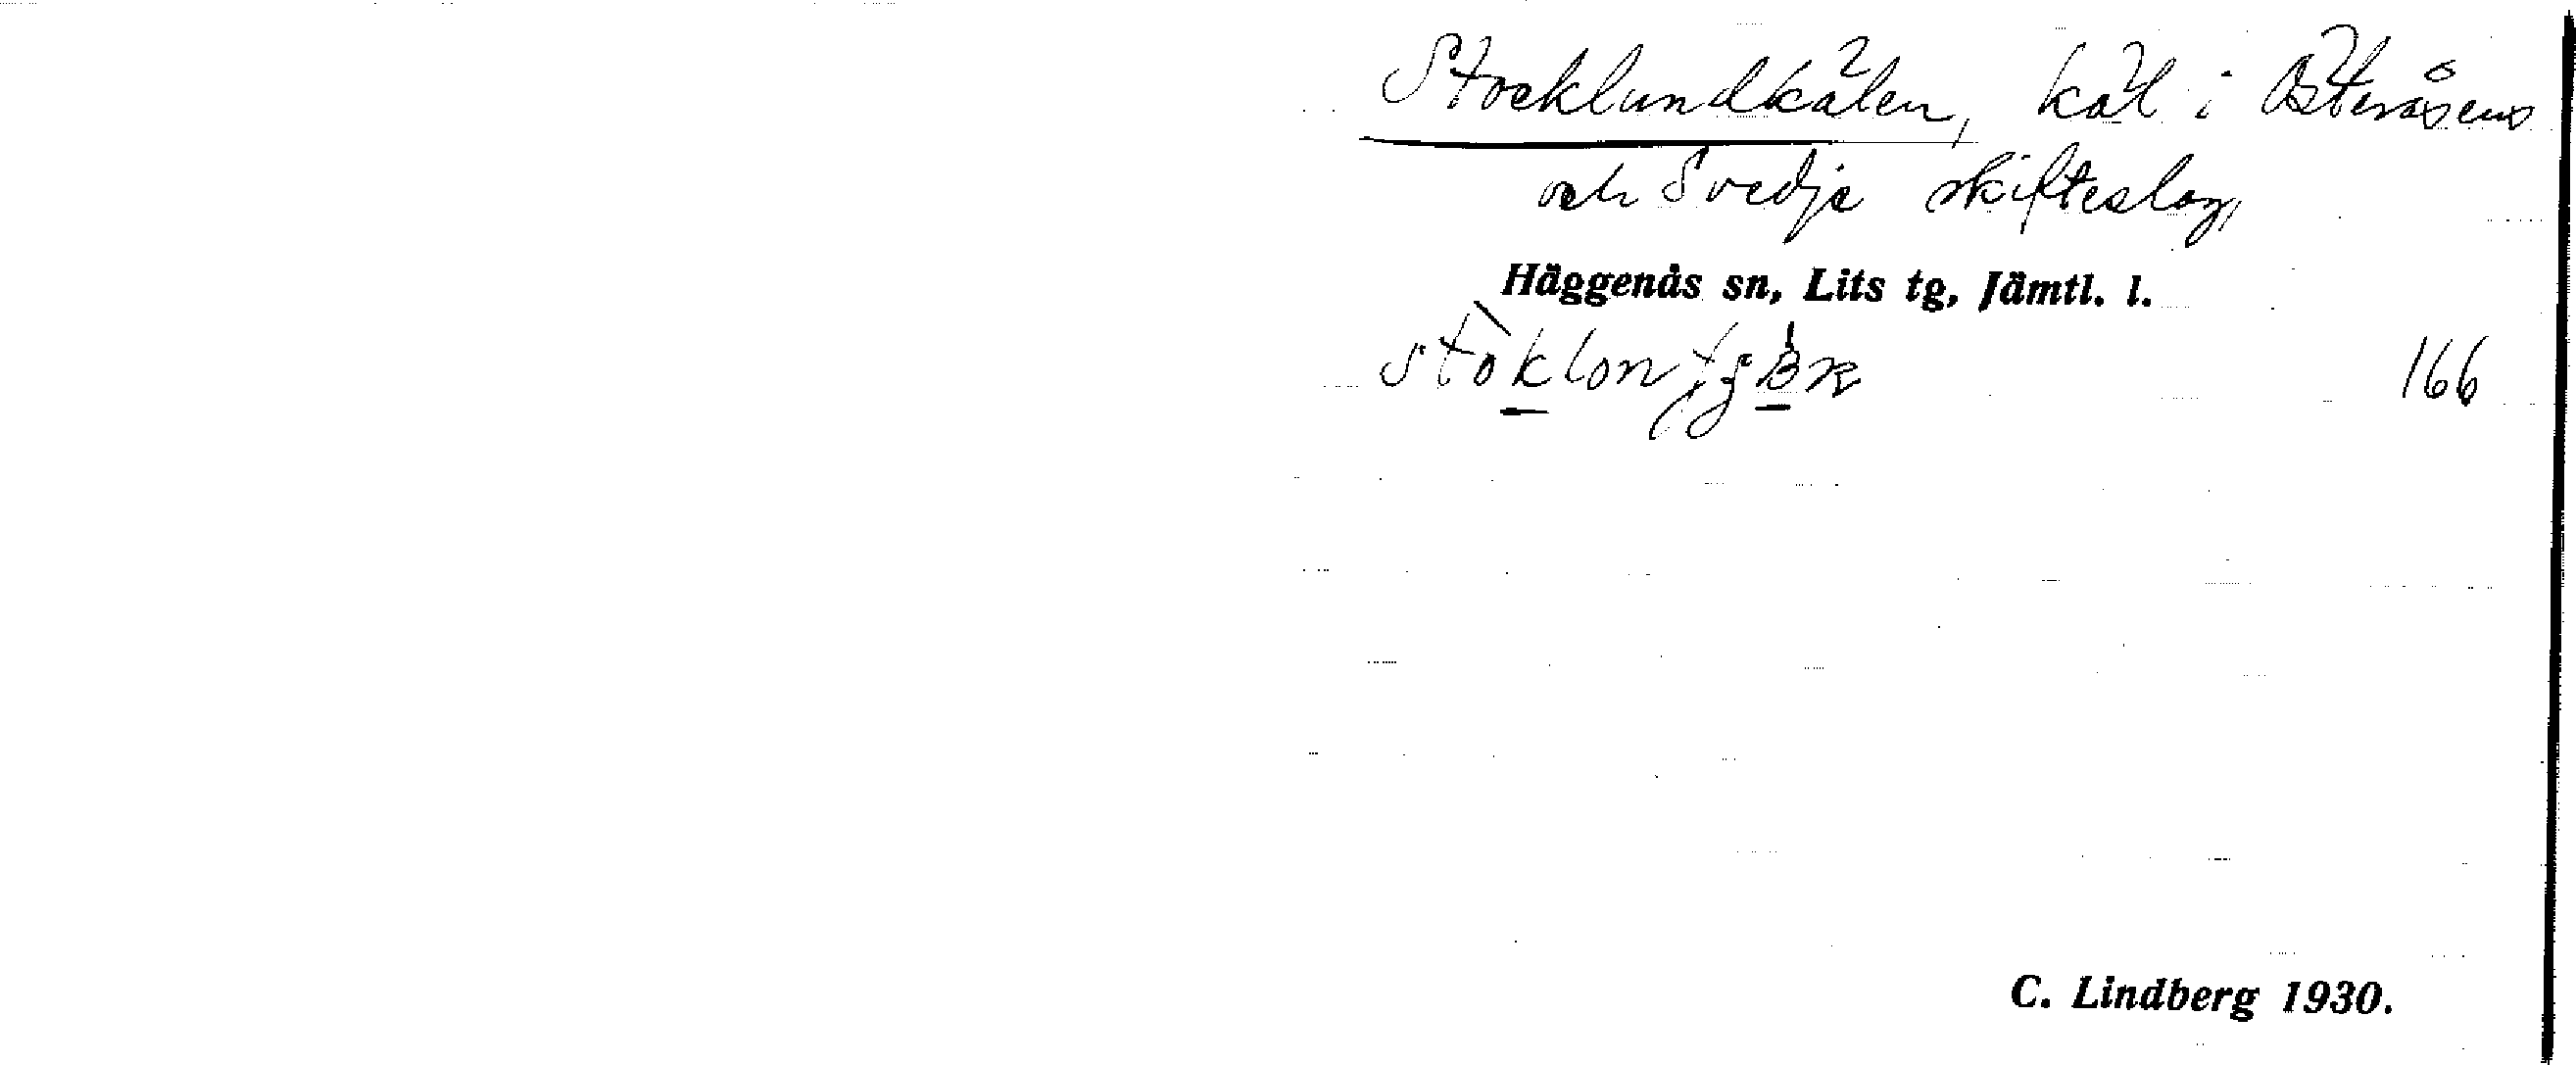 Stocklundkälen, käl i Österåsens
och Svedje skifteslag,
Häggenås sn, Lits tg, Jämtl. l.
166
C. Lindberg 1930.